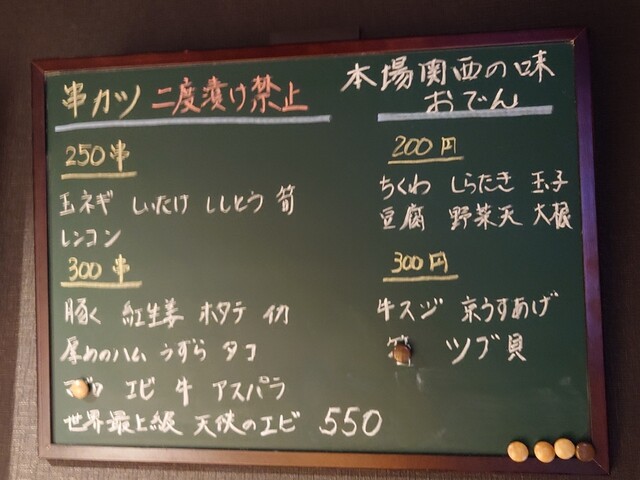 串カツ 二度漬け禁止
250串
玉ネギ しいたけ ししとう 筍
レンコン
300串
豚く 紅生姜 ホタテ イカ
厚めのハム うずら タコ
エビ 牛 アスパラ
世界最上級 天使のエビ 550
本場関西の味
おでん
200円
ちくわ しらたき 玉子
豆腐 野菜天 大根
300円
牛スジ 京うすあげ
ツブ貝